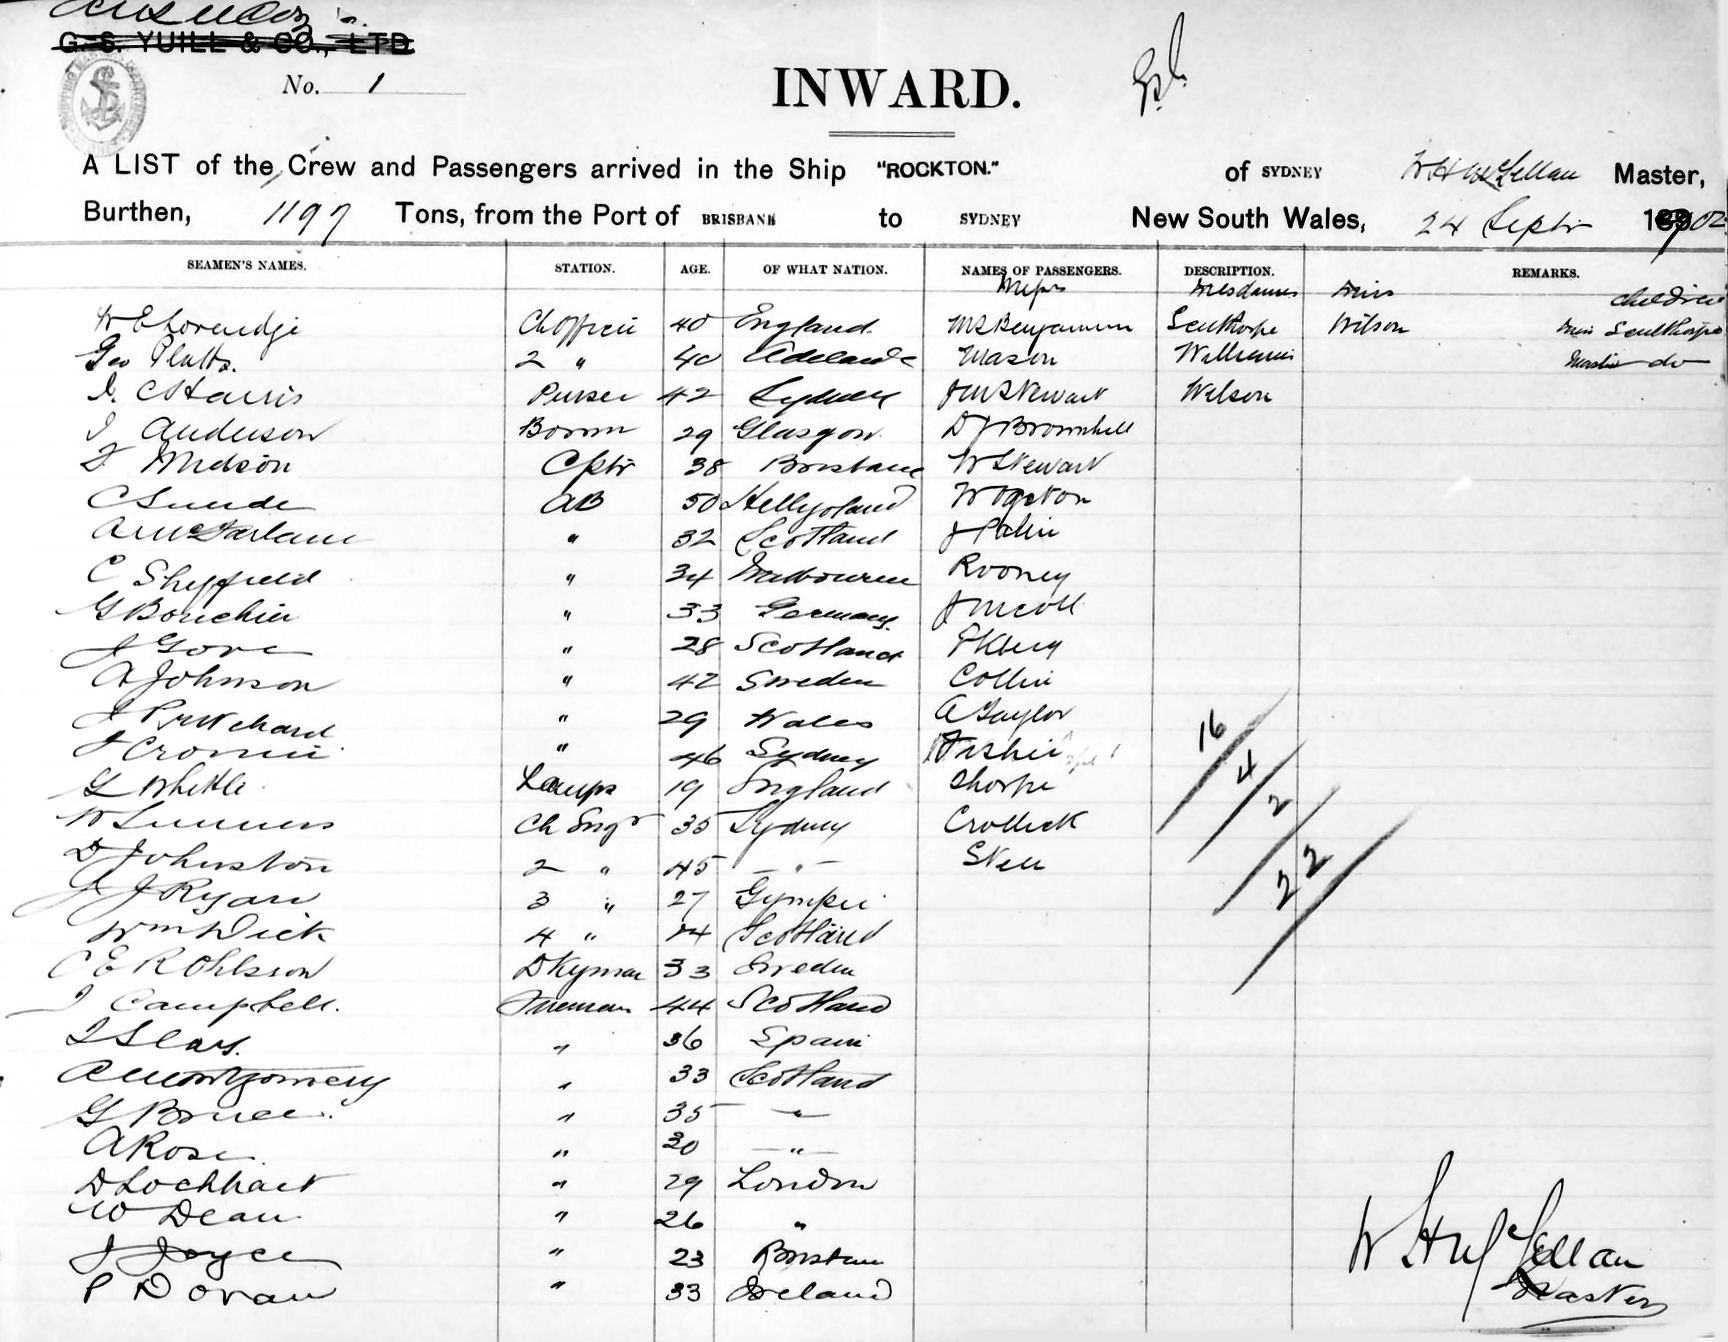 G. S. YUILL & CO., LTD
No. 1
INWARD.
A LIST of the Crew and Passengers arrived in the Ship "ROCKTON." of SYDNEY W H McLellan Master,
Burthen, 1197 Tons, from the Port of BRISBANE to SYDNEY New South Wales, 24 Septr 1902
SEAMEN'S NAMES. STATION. AGE. OF WHAT NATION. NAMES OF PASSENGERS. DESCRIPTION. REMARKS.
Messrs Mesdames Miss Children
Ch Officer 40 England Benjamin Sculthorpe Wilson Miss Sculthorpe
Geo Platts. 2 " 40 Adelaide Mason Williams Master do
C Harris Purser 42 Sydney J M Stewart Wilson
J Anderson Bosun 29 Glasgow D J Brownhill
Cptr 38 Brisbane W Stewart
C Sunde AB 50 Hellgoland W Ogston
A McFarlane " 32 Scotland
C Sheffield " 34 Melbourne Rooney
G Bouchier " 33 Germany J Nicoll
J Gore " 28 Scotland
A Johnson " 42 Sweden Collin
J Pritchard " 29 Wales A Taylor
J Cronin " 46 Sydney
G Whittle Lamps 19 England Thorpe
W Summers Ch Engr 35 Sydney Crollick
D Johnston 2 " 45 "
J J Ryan 3 " 27 Gympie
Wm Dick 4 " 24 Scotland
C E R Ohlsson Dkyman 33 Sweden
J Campbell. Fireman 44 Scotland
" 36 Spain
A Montgomery " 33 Scotland
G Bruce. " 35 "
A Rose " 30 "
D Lochhart " 29 London
W Dean " 26 "
J Joyce " 23 Brisbane
P Doran " 33 Ireland
16
4
2
22
W H McLellan
Master